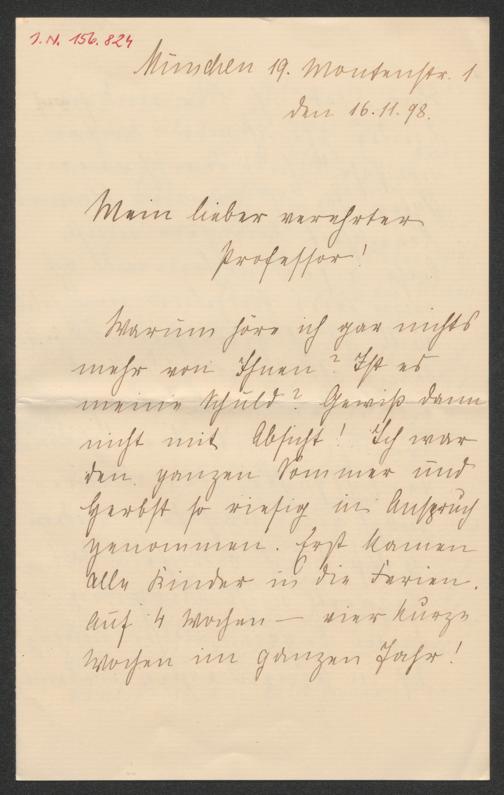 J.N. 156.824
München 19. Montenstr. 1
den 16.11.98.
Mein lieber verehrter
Professor!
Warum höre ich gar nichts
mehr von Ihnen? Ist es
meine Schuld? Gewiß dann
nicht mit Absicht! Ich war
den ganzen Sommer und
Herbst so riesig in Anspruch
genommen. Erst kamen
alle Kinder in die Ferien.
Auf 4 Wochen — vier kurze
Wochen im ganzen Jahr!